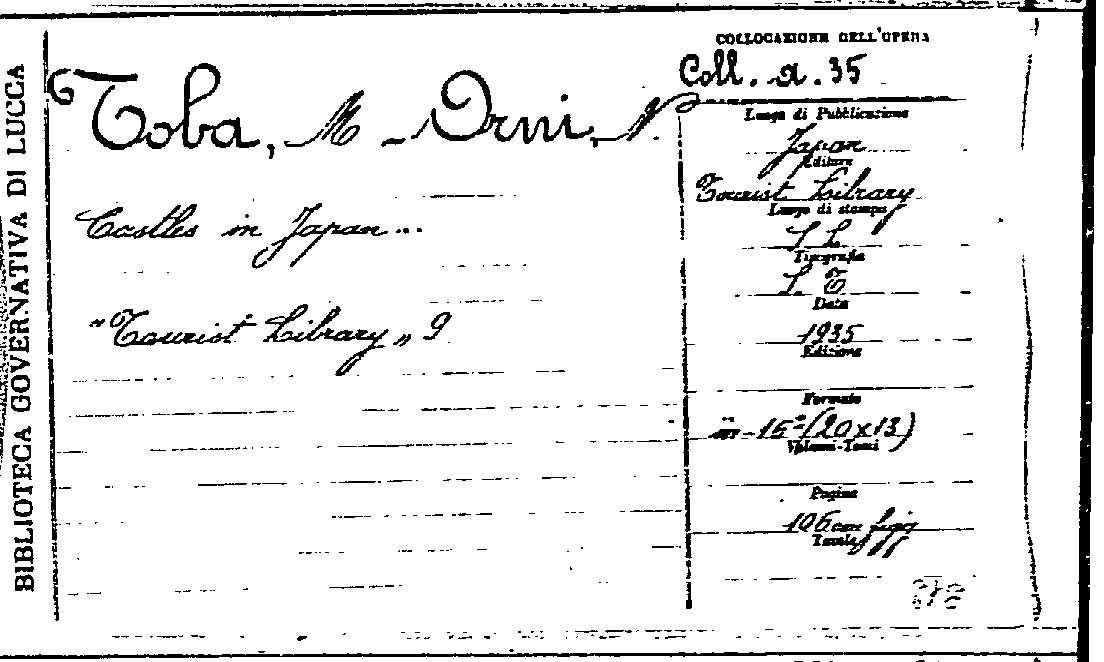 BIBLIOTECA GOVERNATIVA DI LUCCA
Toba, M - Orni, N.
Castles in Japan...
"Tourist Library" 9
COLLOCAZIONE DELL'OPERA
Coll. a. 35
Luogo di Pubblicazione
Japan
Editore
Tourist Library
Luogo di stampa
S. L.
Tipografia
S. T.
Data
1935
Edizione
Formato
in-16° (20x13)
Volumi-Tomi
Pagine
106 con figg
Tavole